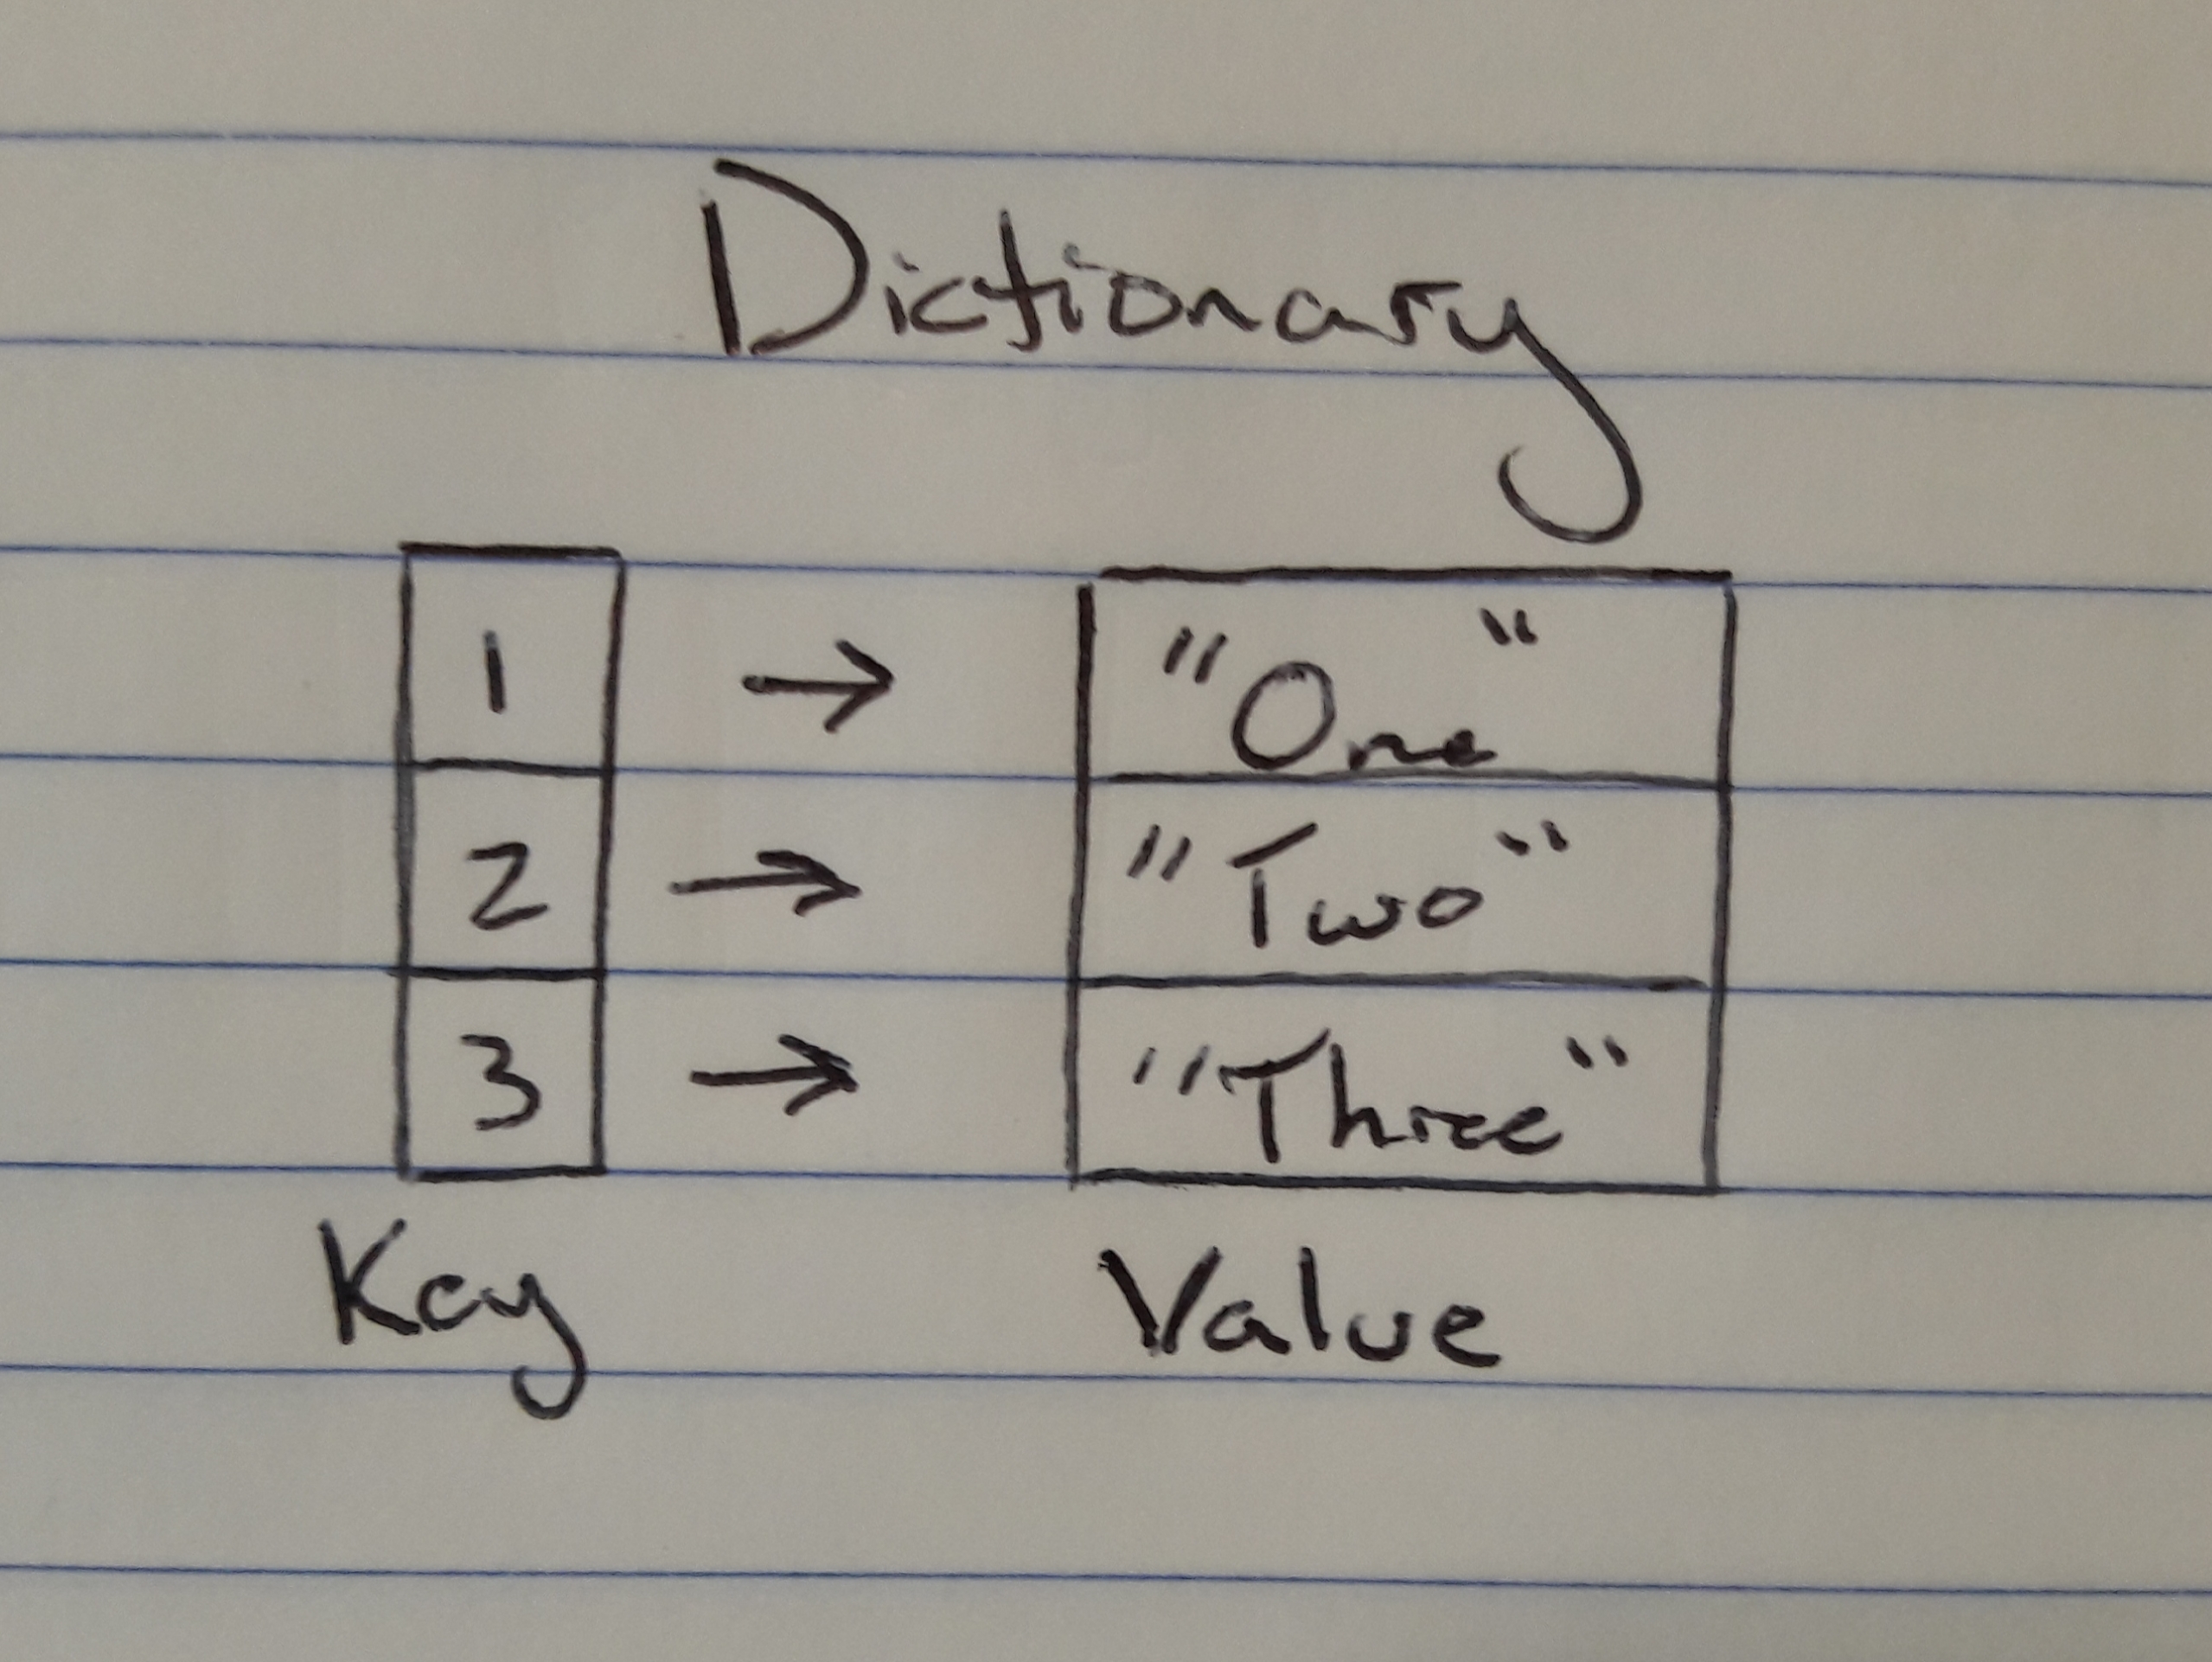 Dictionary
1 → "One"
2 → "Two"
3 → "Three"
Key Value